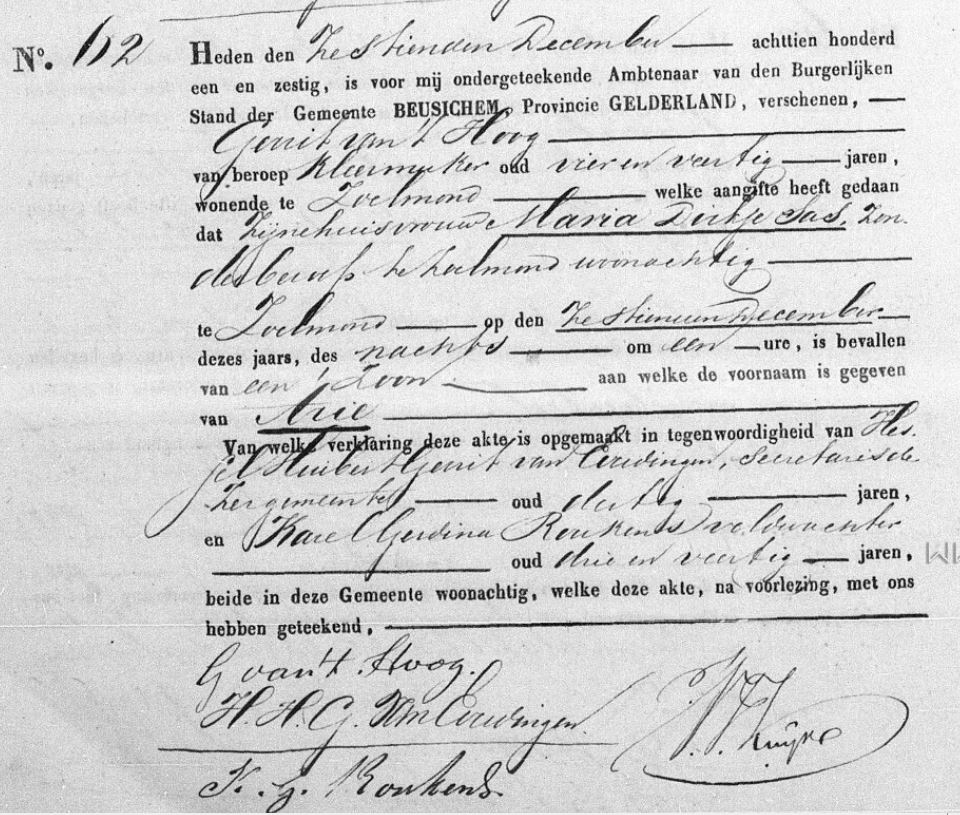 No. 112 Heden den Zestienden December achttien honderd
een en zestig, is voor mij ondergeteekende Ambtenaar van den Burgerlijken
Stand der Gemeente BEUSICHEM, Provincie GELDERLAND, verschenen,
Gerrit van 't Hoog
van beroep Kleermaker oud vier en veertig jaren,
wonende te Zoelmond welke aangifte heeft gedaan
dat Zijne huisvrouw Maria Dirkje Sas, Zon
der beroep te Zoelmond woonachtig
te Zoelmond op den Zestienden December
dezes jaars, des nachts om een ure, is bevallen
van een Zoon aan welke de voornaam is gegeven
van Arie
Van welke verklaring deze akte is opgemaakt in tegenwoordigheid van Hes
sel Huibert Gerrit van Everdingen, Secretaris de
zer gemeente oud dertig jaren,
en Karel Gerdinus Roukens veldwachter
oud drie en veertig jaren,
beide in deze Gemeente woonachtig, welke deze akte, na voorlezing, met ons
hebben geteekend,
G van 't Hoog.
H. H. G. van Everdingen.
K. G. Roukens.